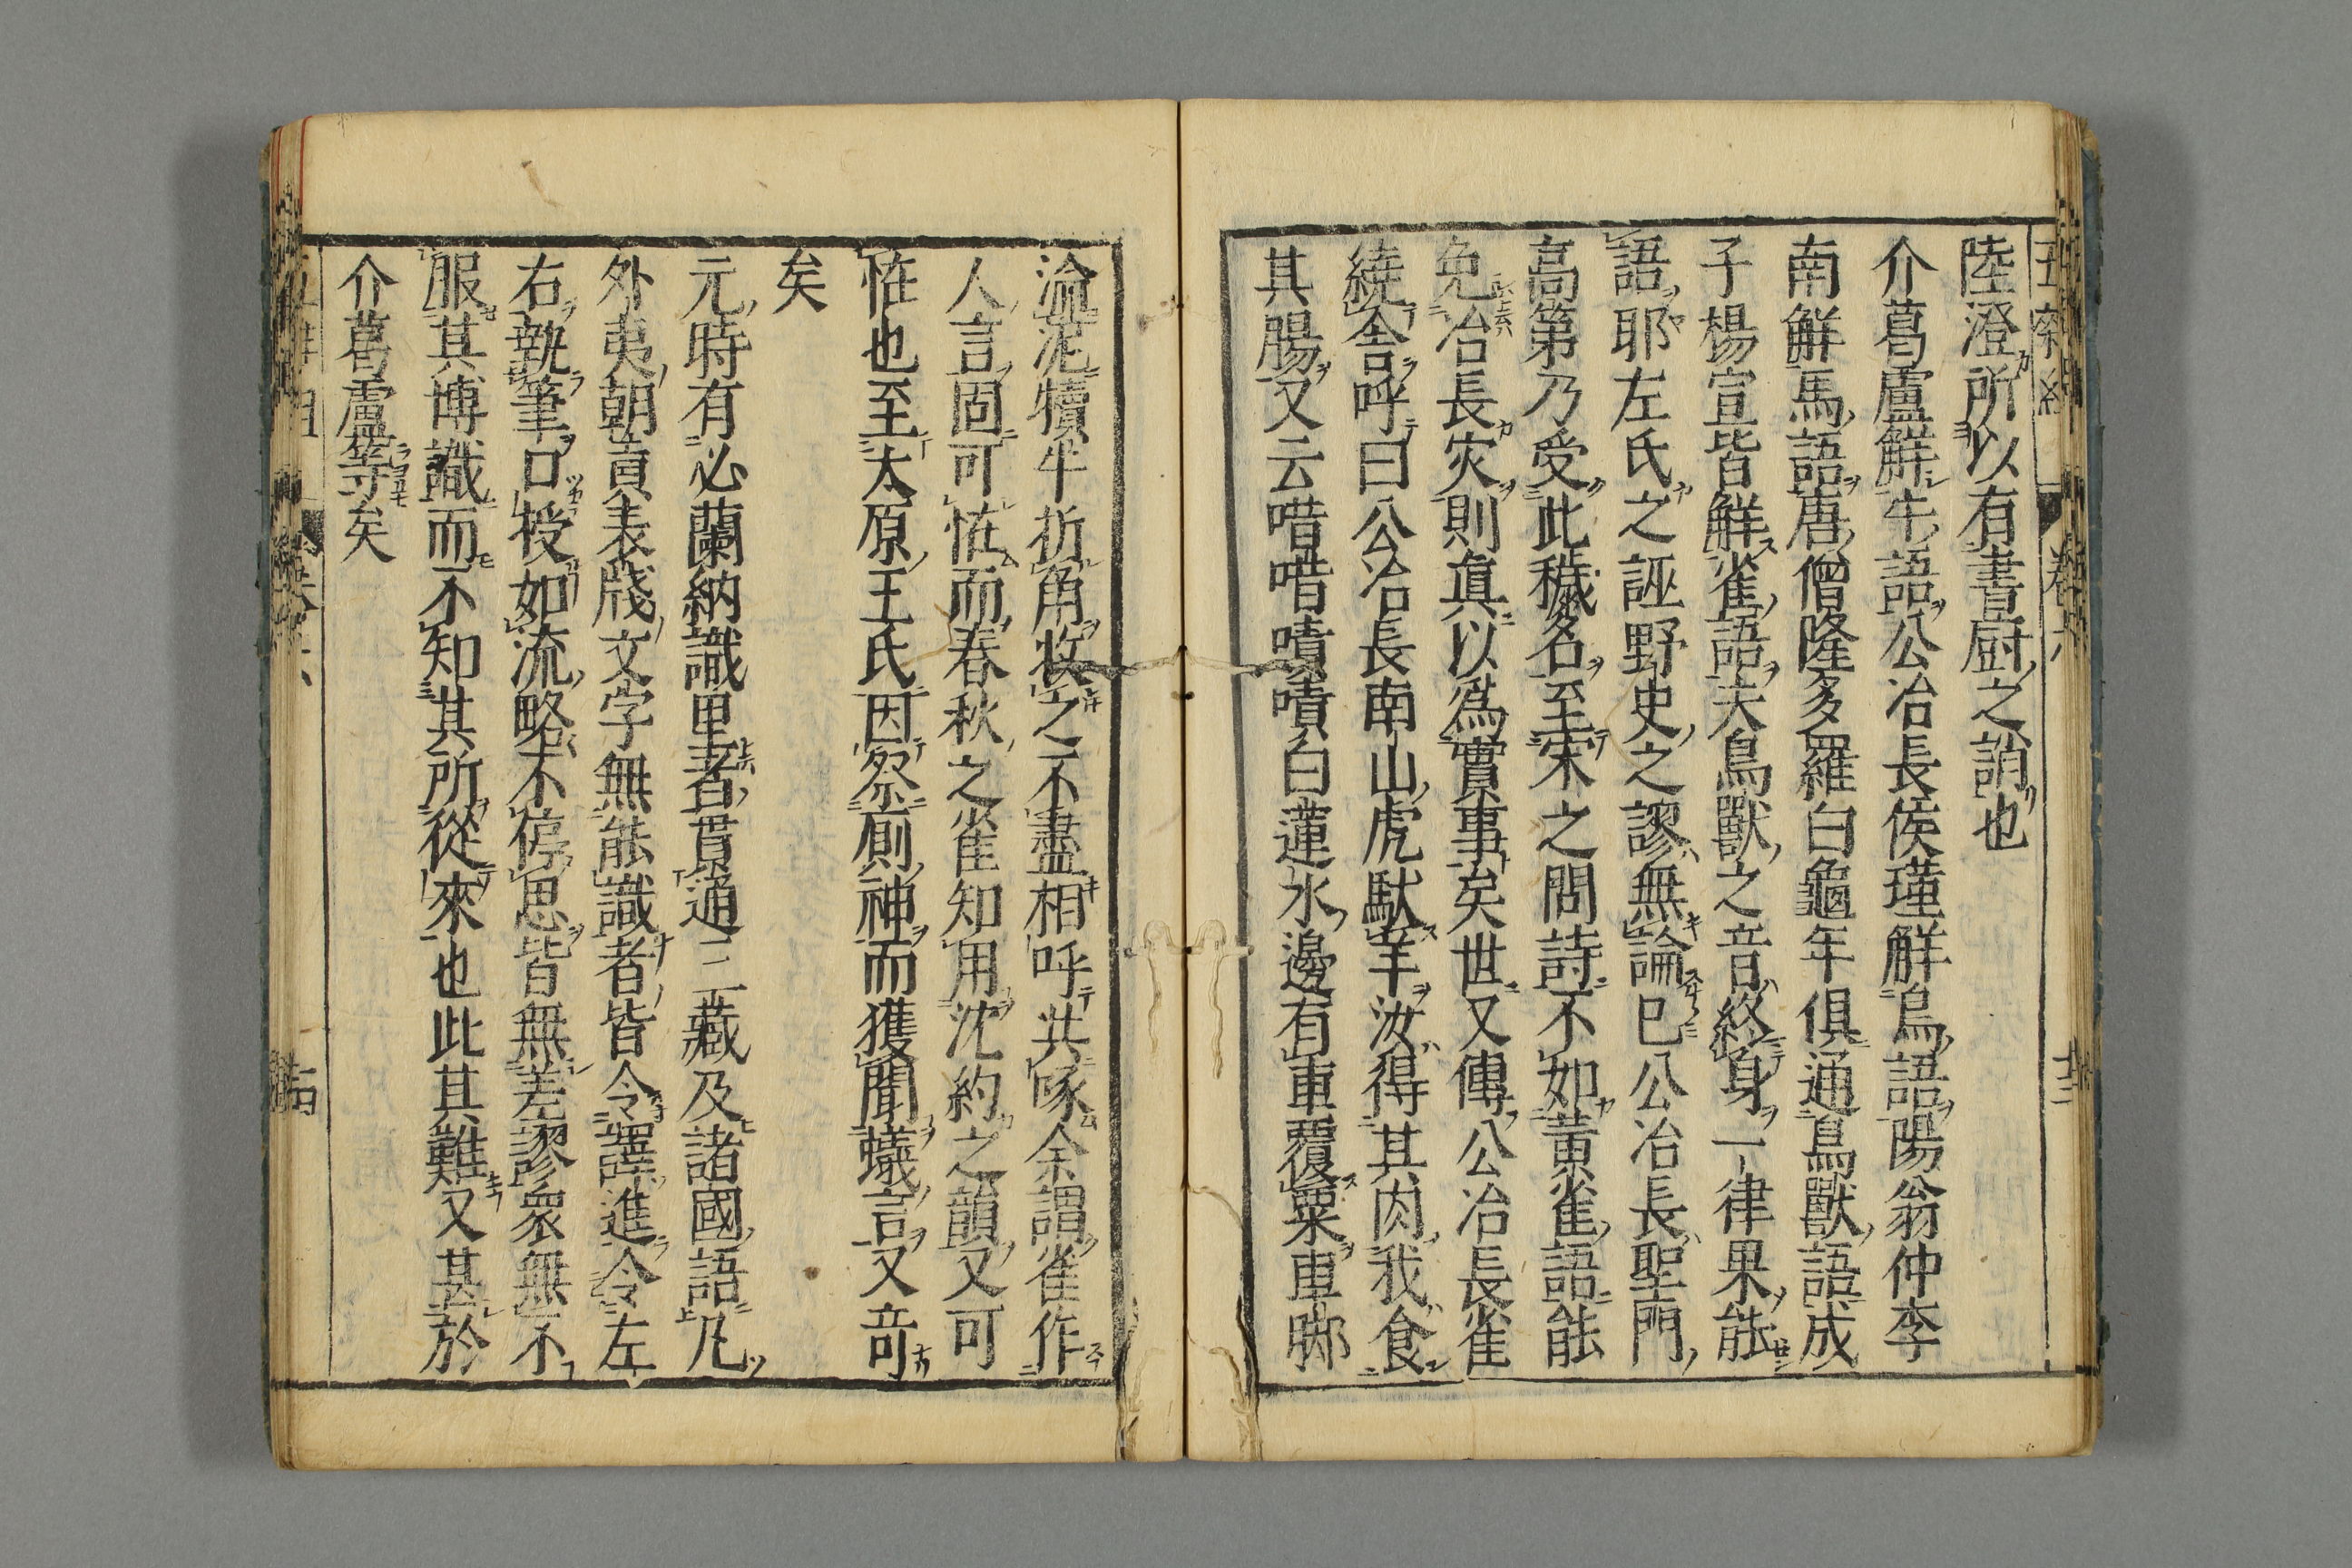 陸澄所以有書厨之誚也
介葛盧解牛語公冶長侯瑾解鳥語陽翁仲李
南解馬語唐僧隆多羅白龜年俱通鳥獸語成
子楊宣皆解雀語夫鳥獸之音終身一律果能
語耶左氏之誣野史之謬無論已公冶長聖門
高第乃受此穢名至宋之問詩不如黄雀語能
免冶長灾則真以為實事矣世又傳公冶長雀
繞舍呼曰公冶長南山虎馱羊汝得其肉我食
其腸又云唶唶嘖嘖白蓮水邊有車覆粟車脚
淪泥犢牛折角收之不盡相呼共啄余謂雀作
人言固可怪而春秋之雀知用沈約之韻又可
怪也至太原王氏因祭厠神而獲聞蟻言又竒
矣
元時有必蘭納識里者貫通三藏及諸國語凡
外夷朝貢表牋文字無能識者皆令譯進令左
右執筆口授如流略不停思皆無差謬衆無不
服其博識而不知其所從來也此其難又甚於
介葛盧等矣